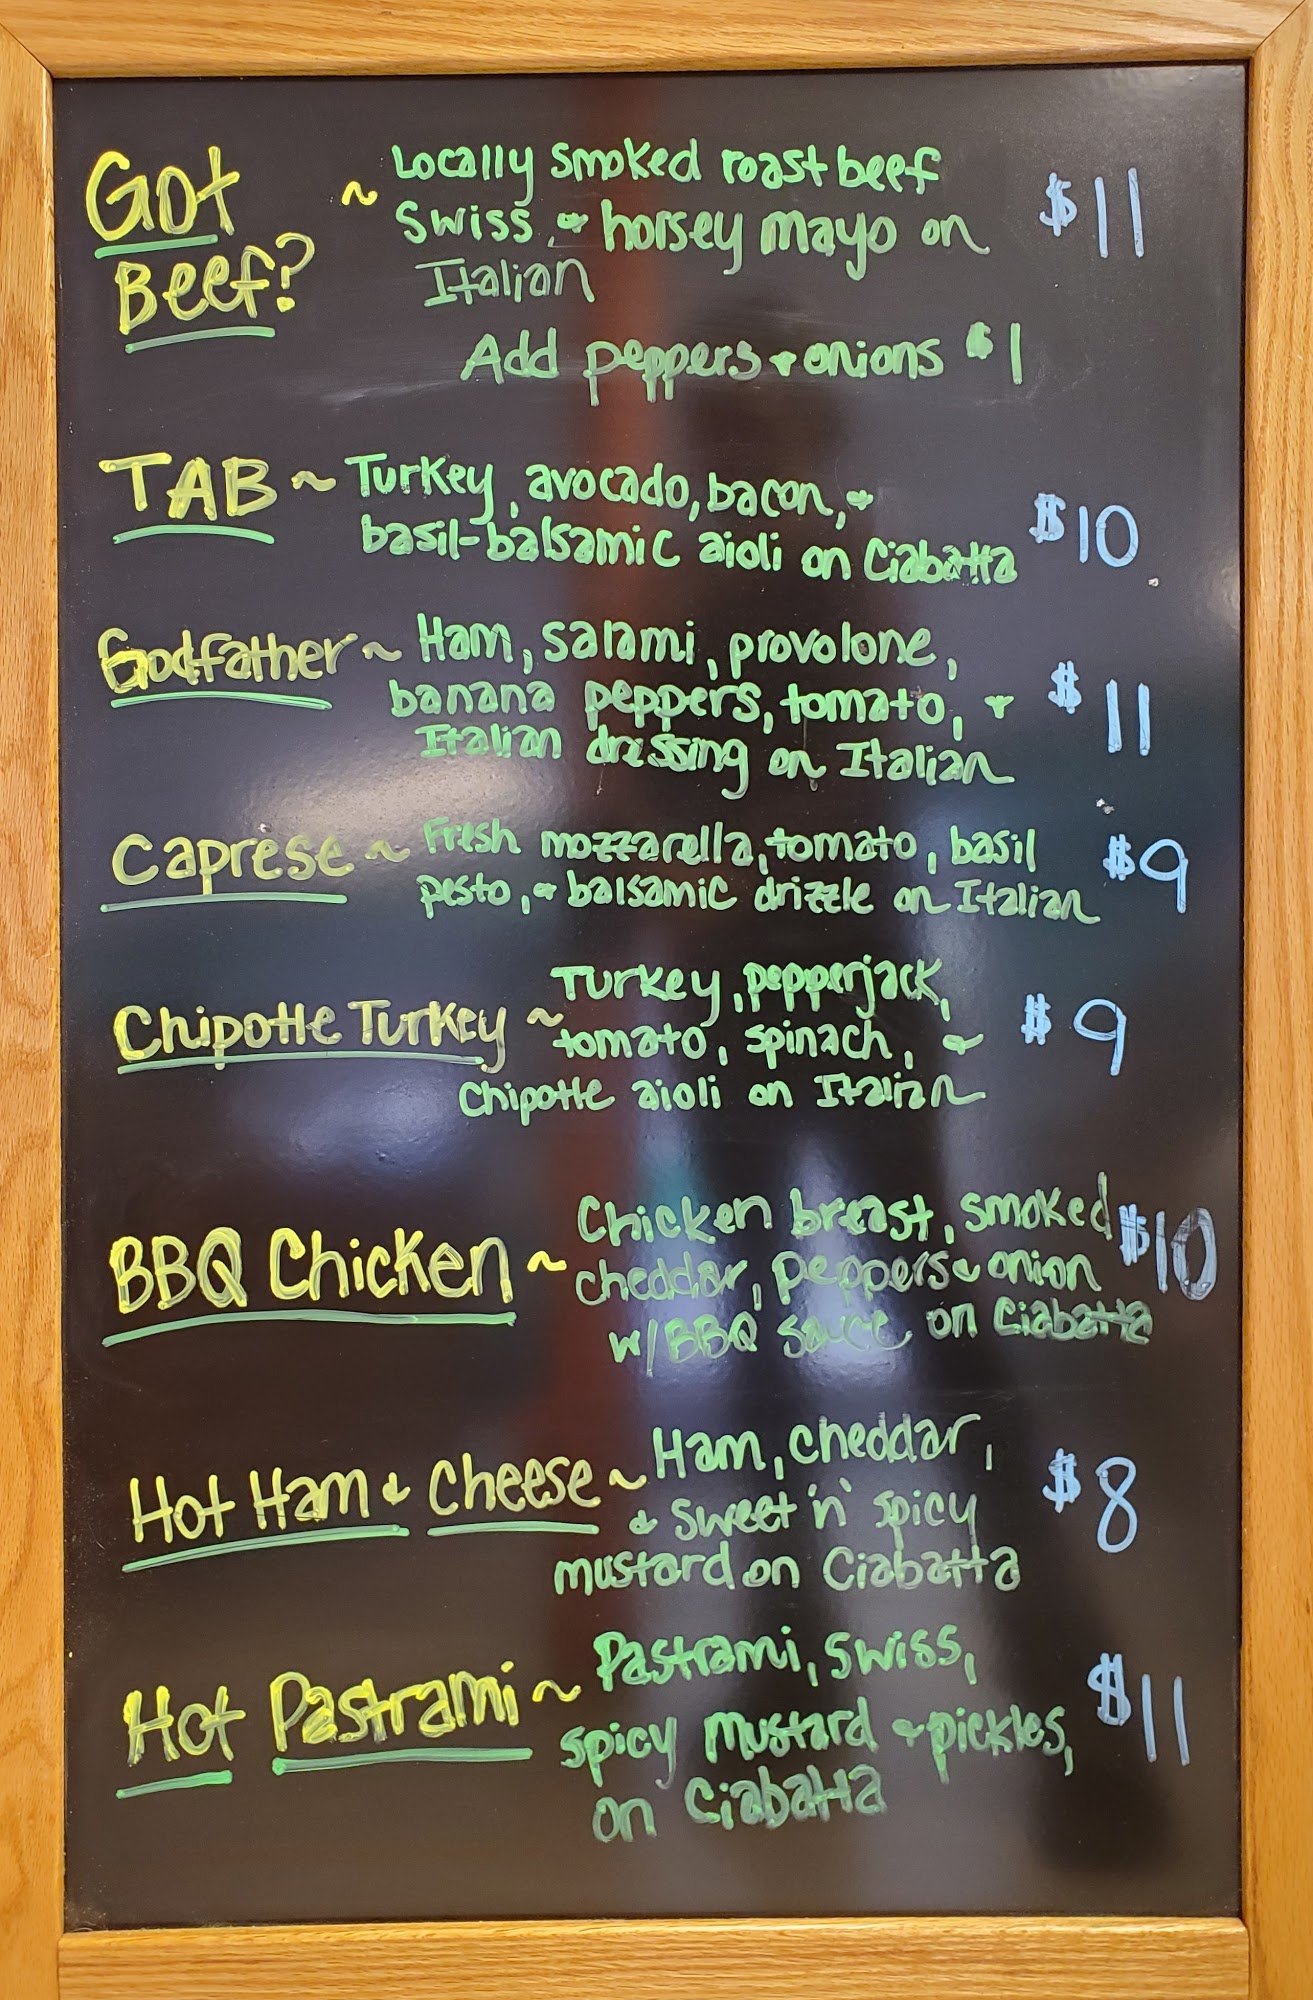 Got Beef? ~ Locally smoked roast beef $11
Swiss, & horsey mayo on
Italian
Add peppers & onions $1
TAB ~ Turkey, avocado, bacon, & $10
basil-balsamic aioli on Ciabatta
Godfather ~ Ham, salami, provolone, $11
banana peppers, tomato, &
Italian dressing on Italian
Caprese ~ Fresh mozzarella, tomato, basil $9
pesto, & balsamic drizzle on Italian
Chipotle Turkey ~ Turkey, pepperjack, $9
tomato, spinach, &
Chipotle aioli on Italian
BBQ Chicken ~ Chicken breast, smoked $10
cheddar, peppers & onion
w/ BBQ sauce on Ciabatta
Hot Ham & Cheese ~ Ham, cheddar, $8
& sweet 'n' spicy
mustard on Ciabatta
Hot Pastrami ~ Pastrami, swiss, $11
spicy mustard & pickles,
on Ciabatta